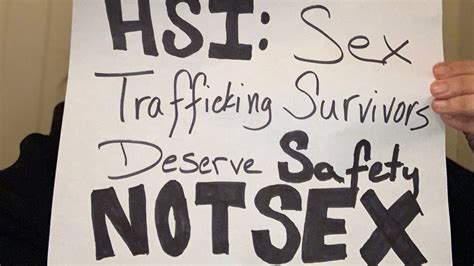 HSI: Sex
Trafficking Survivors
Deserve Safety
NOT SEX